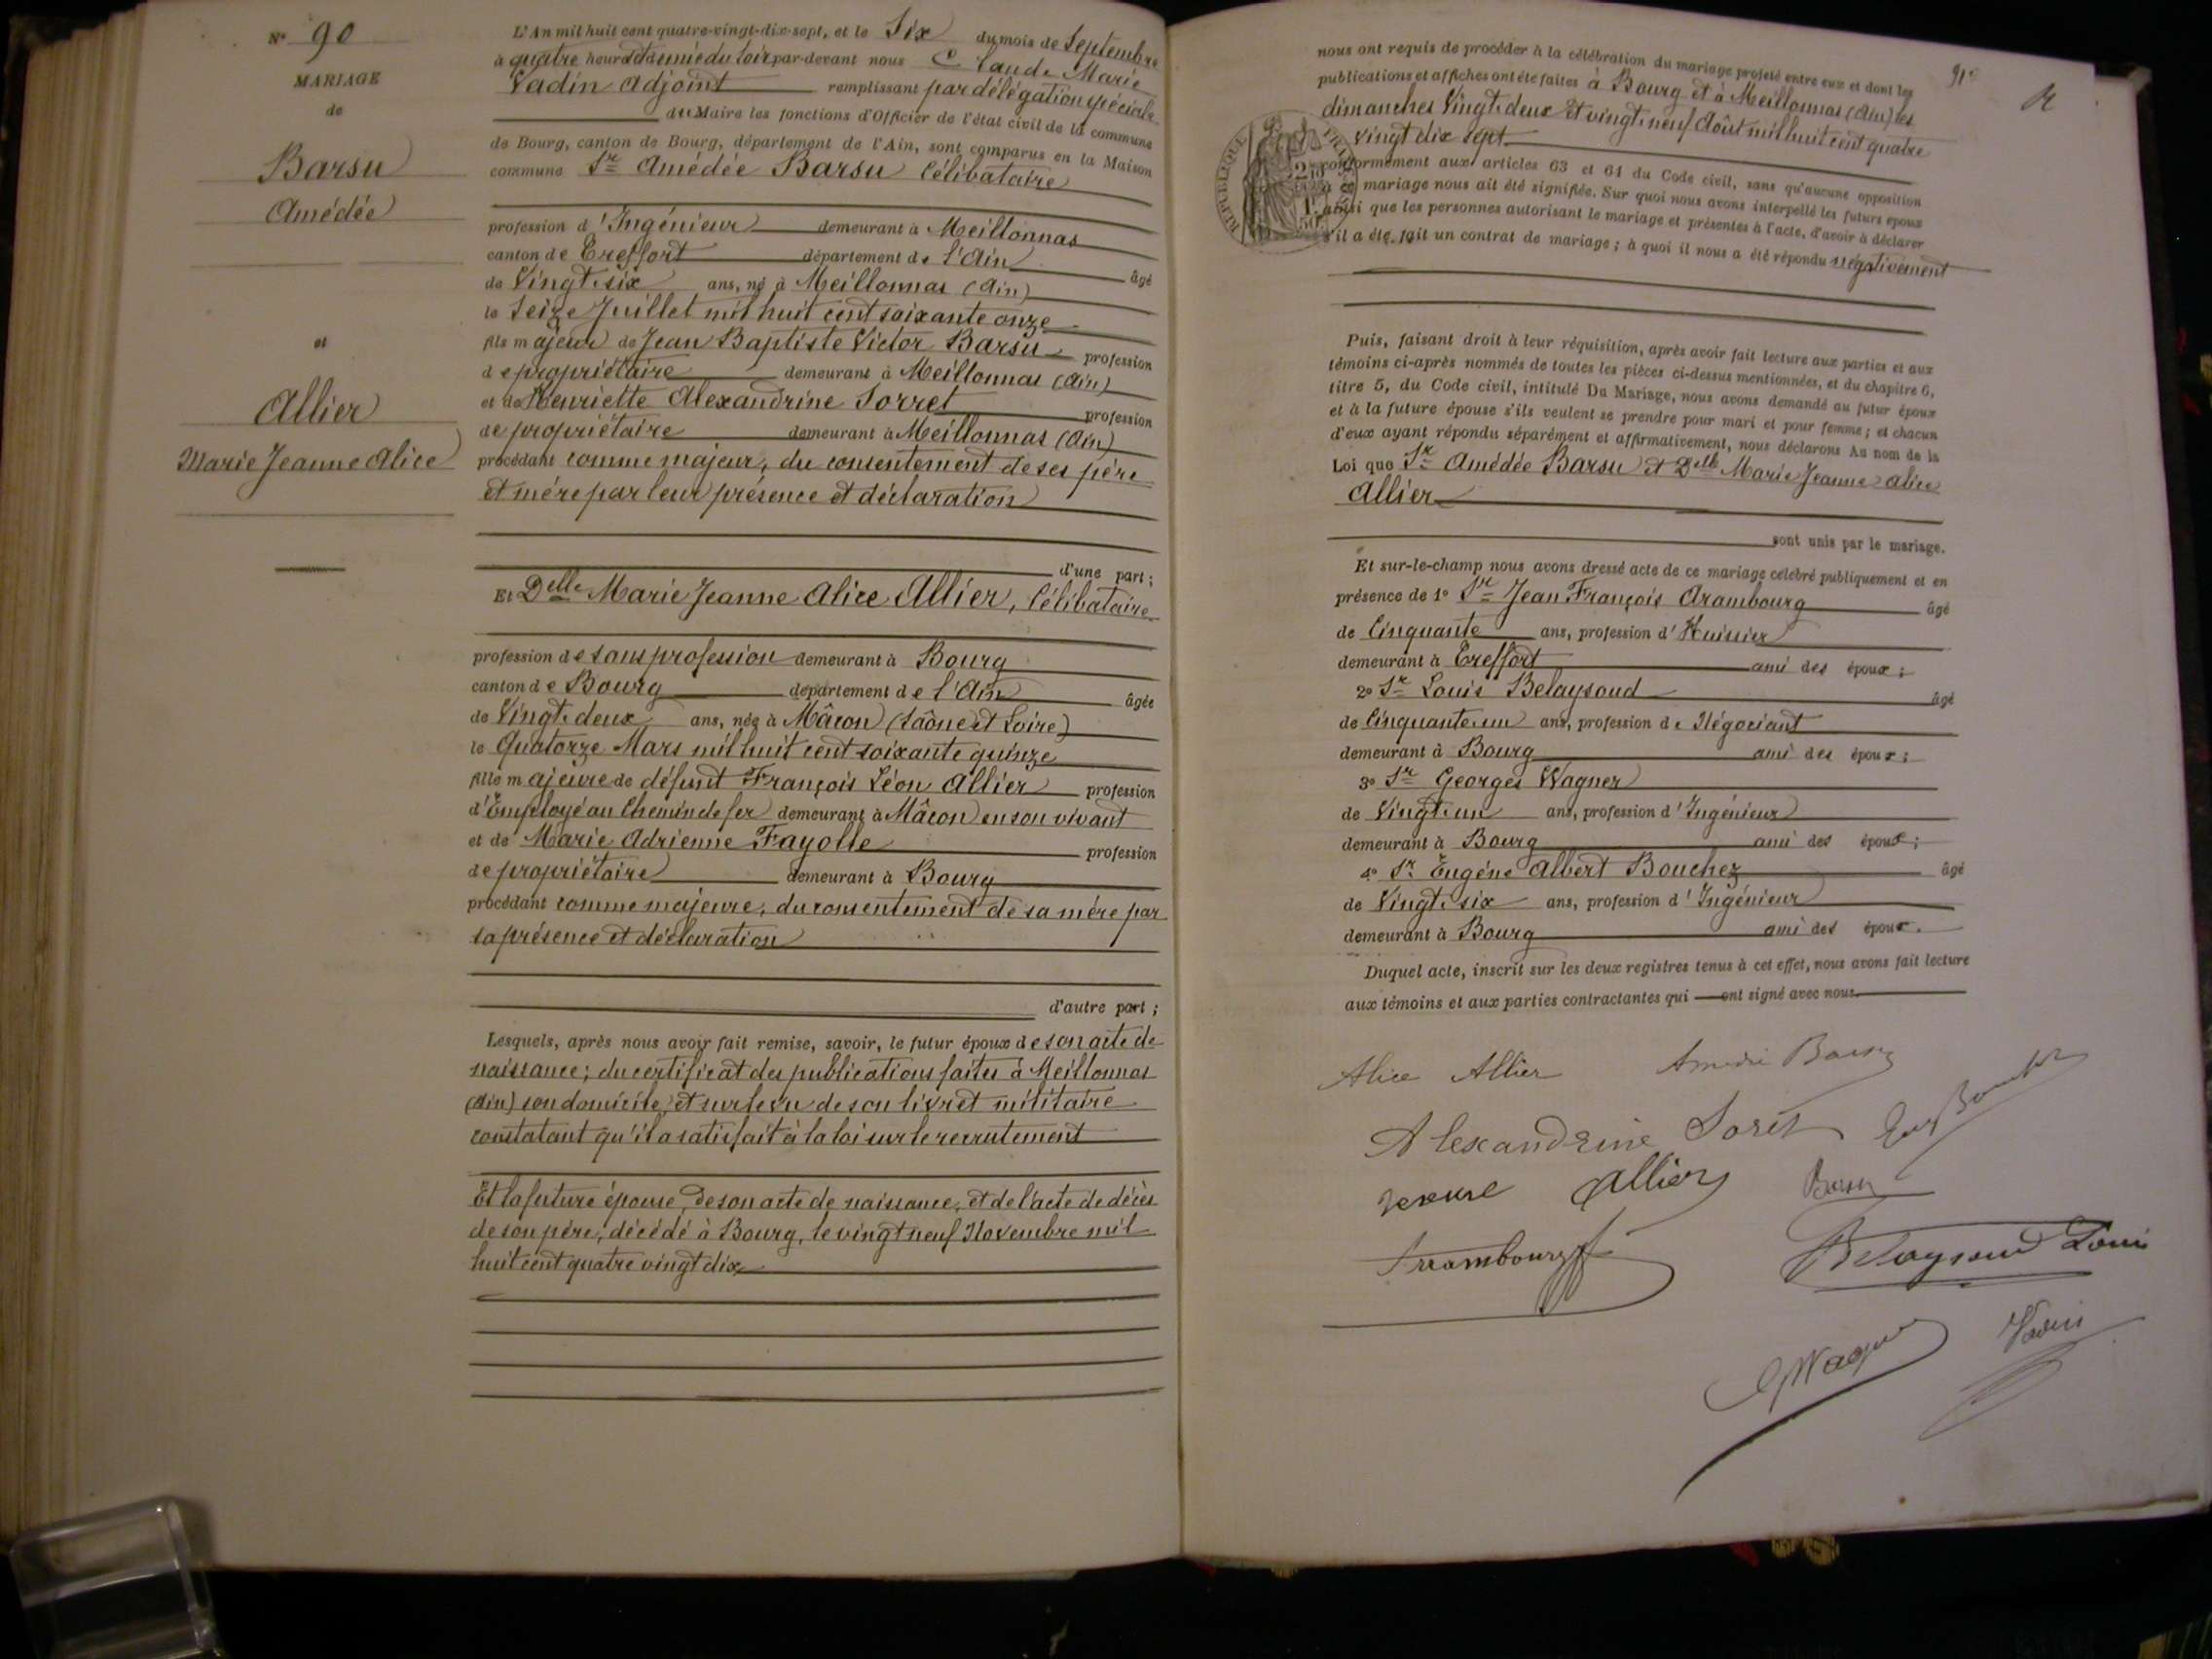 N° 90
MARIAGE
de
Barsu
Amédée
et
Allier
Marie Jeanne Alice
L'An mil huit cent quatre-vingt-dix-sept, et le Six du mois de Septembre
à quatre heures et demie du soir par-devant nous Claude Marie
Vadin Adjoint remplissant par délégation spéciale
du Maire les fonctions d'Officier de l'état civil de la commune
de Bourg, canton de Bourg, département de l'Ain, sont comparus en la Maison
commune Sr Amédée Barsu Célibataire
profession d'Ingénieur demeurant à Meillonnas
canton de Treffort département de l'Ain âgé
de Vingt-six ans, né à Meillonnas (Ain)
le Seize Juillet mil huit cent soixante onze
fils majeur de Jean Baptiste Victor Barsu profession
de propriétaire demeurant à Meillonnas (Ain)
et de Henriette Alexandrine Sorret profession
de propriétaire demeurant à Meillonnas (Ain)
procédant comme majeur, du consentement de ses père
et mère par leur présence et déclaration
d'une part ;
Et Delle Marie Jeanne Alice Allier, Célibataire
profession de sans profession demeurant à Bourg
canton de Bourg département de l'Ain âgée
de Vingt-deux ans, née à Mâcon (Saône et Loire)
le Quatorze Mars mil huit cent soixante quinze
fille majeure de défunt François Léon Allier profession
d'Employé au Chemin de fer demeurant à Mâcon en son vivant
et de Marie Adrienne Fayolle profession
de propriétaire demeurant à Bourg
procédant comme majeure, du consentement de sa mère par
sa présence et déclaration
d'autre part ;
Lesquels, après nous avoir fait remise, savoir, le futur époux de son acte de
naissance ; du certificat des publications faites à Meillonnas
(Ain) son domicile, et sur le vu de son livret militaire
constatant qu'il a satisfait à la loi sur le recrutement
Et la future épouse, de son acte de naissance, et de l'acte de décès
de son père, décédé à Bourg, le vingt neuf Novembre mil
huit cent quatre vingt dix
nous ont requis de procéder à la célébration du mariage projeté entre eux et dont les
publications et affiches ont été faites à Bourg et à Meillonnas (Ain) les
dimanches Vingt-deux et vingt-neuf Août mil huit cent quatre
vingt dix sept
conformément aux articles 63 et 64 du Code civil, sans qu'aucune opposition
à ce mariage nous ait été signifiée. Sur quoi nous avons interpellé les futurs époux
ainsi que les personnes autorisant le mariage et présentes à l'acte, d'avoir à déclarer
s'il a été fait un contrat de mariage ; à quoi il nous a été répondu négativement
Puis, faisant droit à leur réquisition, après avoir fait lecture aux parties et aux
témoins ci-après nommés de toutes les pièces ci-dessus mentionnées, et du chapitre 6,
titre 5, du Code civil, intitulé Du Mariage, nous avons demandé au futur époux
et à la future épouse s'ils veulent se prendre pour mari et pour femme ; et chacun
d'eux ayant répondu séparément et affirmativement, nous déclarons Au nom de la
Loi que Sr Amédée Barsu et Delle Marie Jeanne Alice
Allier
sont unis par le mariage.
Et sur-le-champ nous avons dressé acte de ce mariage célébré publiquement et en
présence de 1° Sr Jean François Arambourg âgé
de Cinquante ans, profession d'Huissier
demeurant à Treffort ami des époux ;
2° Sr Louis Belaysoud âgé
de Cinquante-un ans, profession de Négociant
demeurant à Bourg ami des époux ;
3° Sr Georges Wagner
de Vingt-un ans, profession d'Ingénieur
demeurant à Bourg ami des époux ;
4° Sr Eugène Albert Bouchez âgé
de Vingt-six ans, profession d'Ingénieur
demeurant à Bourg ami des époux.
Duquel acte, inscrit sur les deux registres tenus à cet effet, nous avons fait lecture
aux témoins et aux parties contractantes qui ont signé avec nous.
Alice Allier Amédée Barsu
Alexandrine Soret
veuve Allier Barsu
Arrambourg Belaysoud Louis
G Wagner Vadin